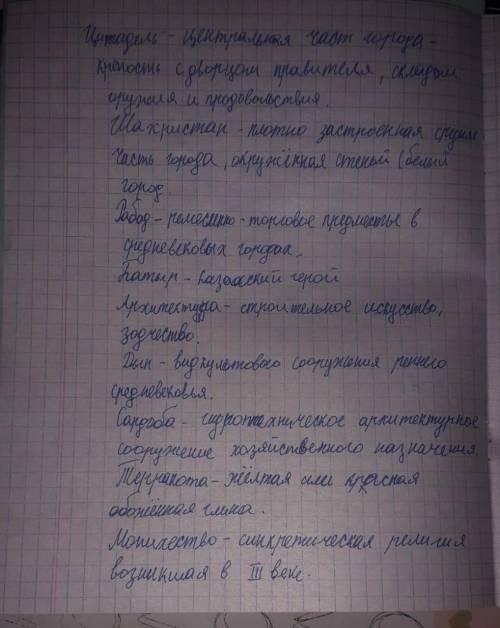 Цитадель - центральная част города -
крепость с дворцом правителя, складом
оружия и продовольствия.
Шахристан - плотно застроенная средняя
часть города, окружённая стеной (белый
город.
Рабад - ремесленно - торговое предместье в
средневековых городах.
Батыр - казахский герой
Архитектура - строительное искусство,
зодчество.
Дын - вид культового сооружения раннего
средневековья.
Сардоба - гидротехническое архитектурное
сооружение хозяйственного назначения.
Терракота - жёлтая или красная
обожённая глина.
Манихество - синкретическая религия
возникшая в III веке.